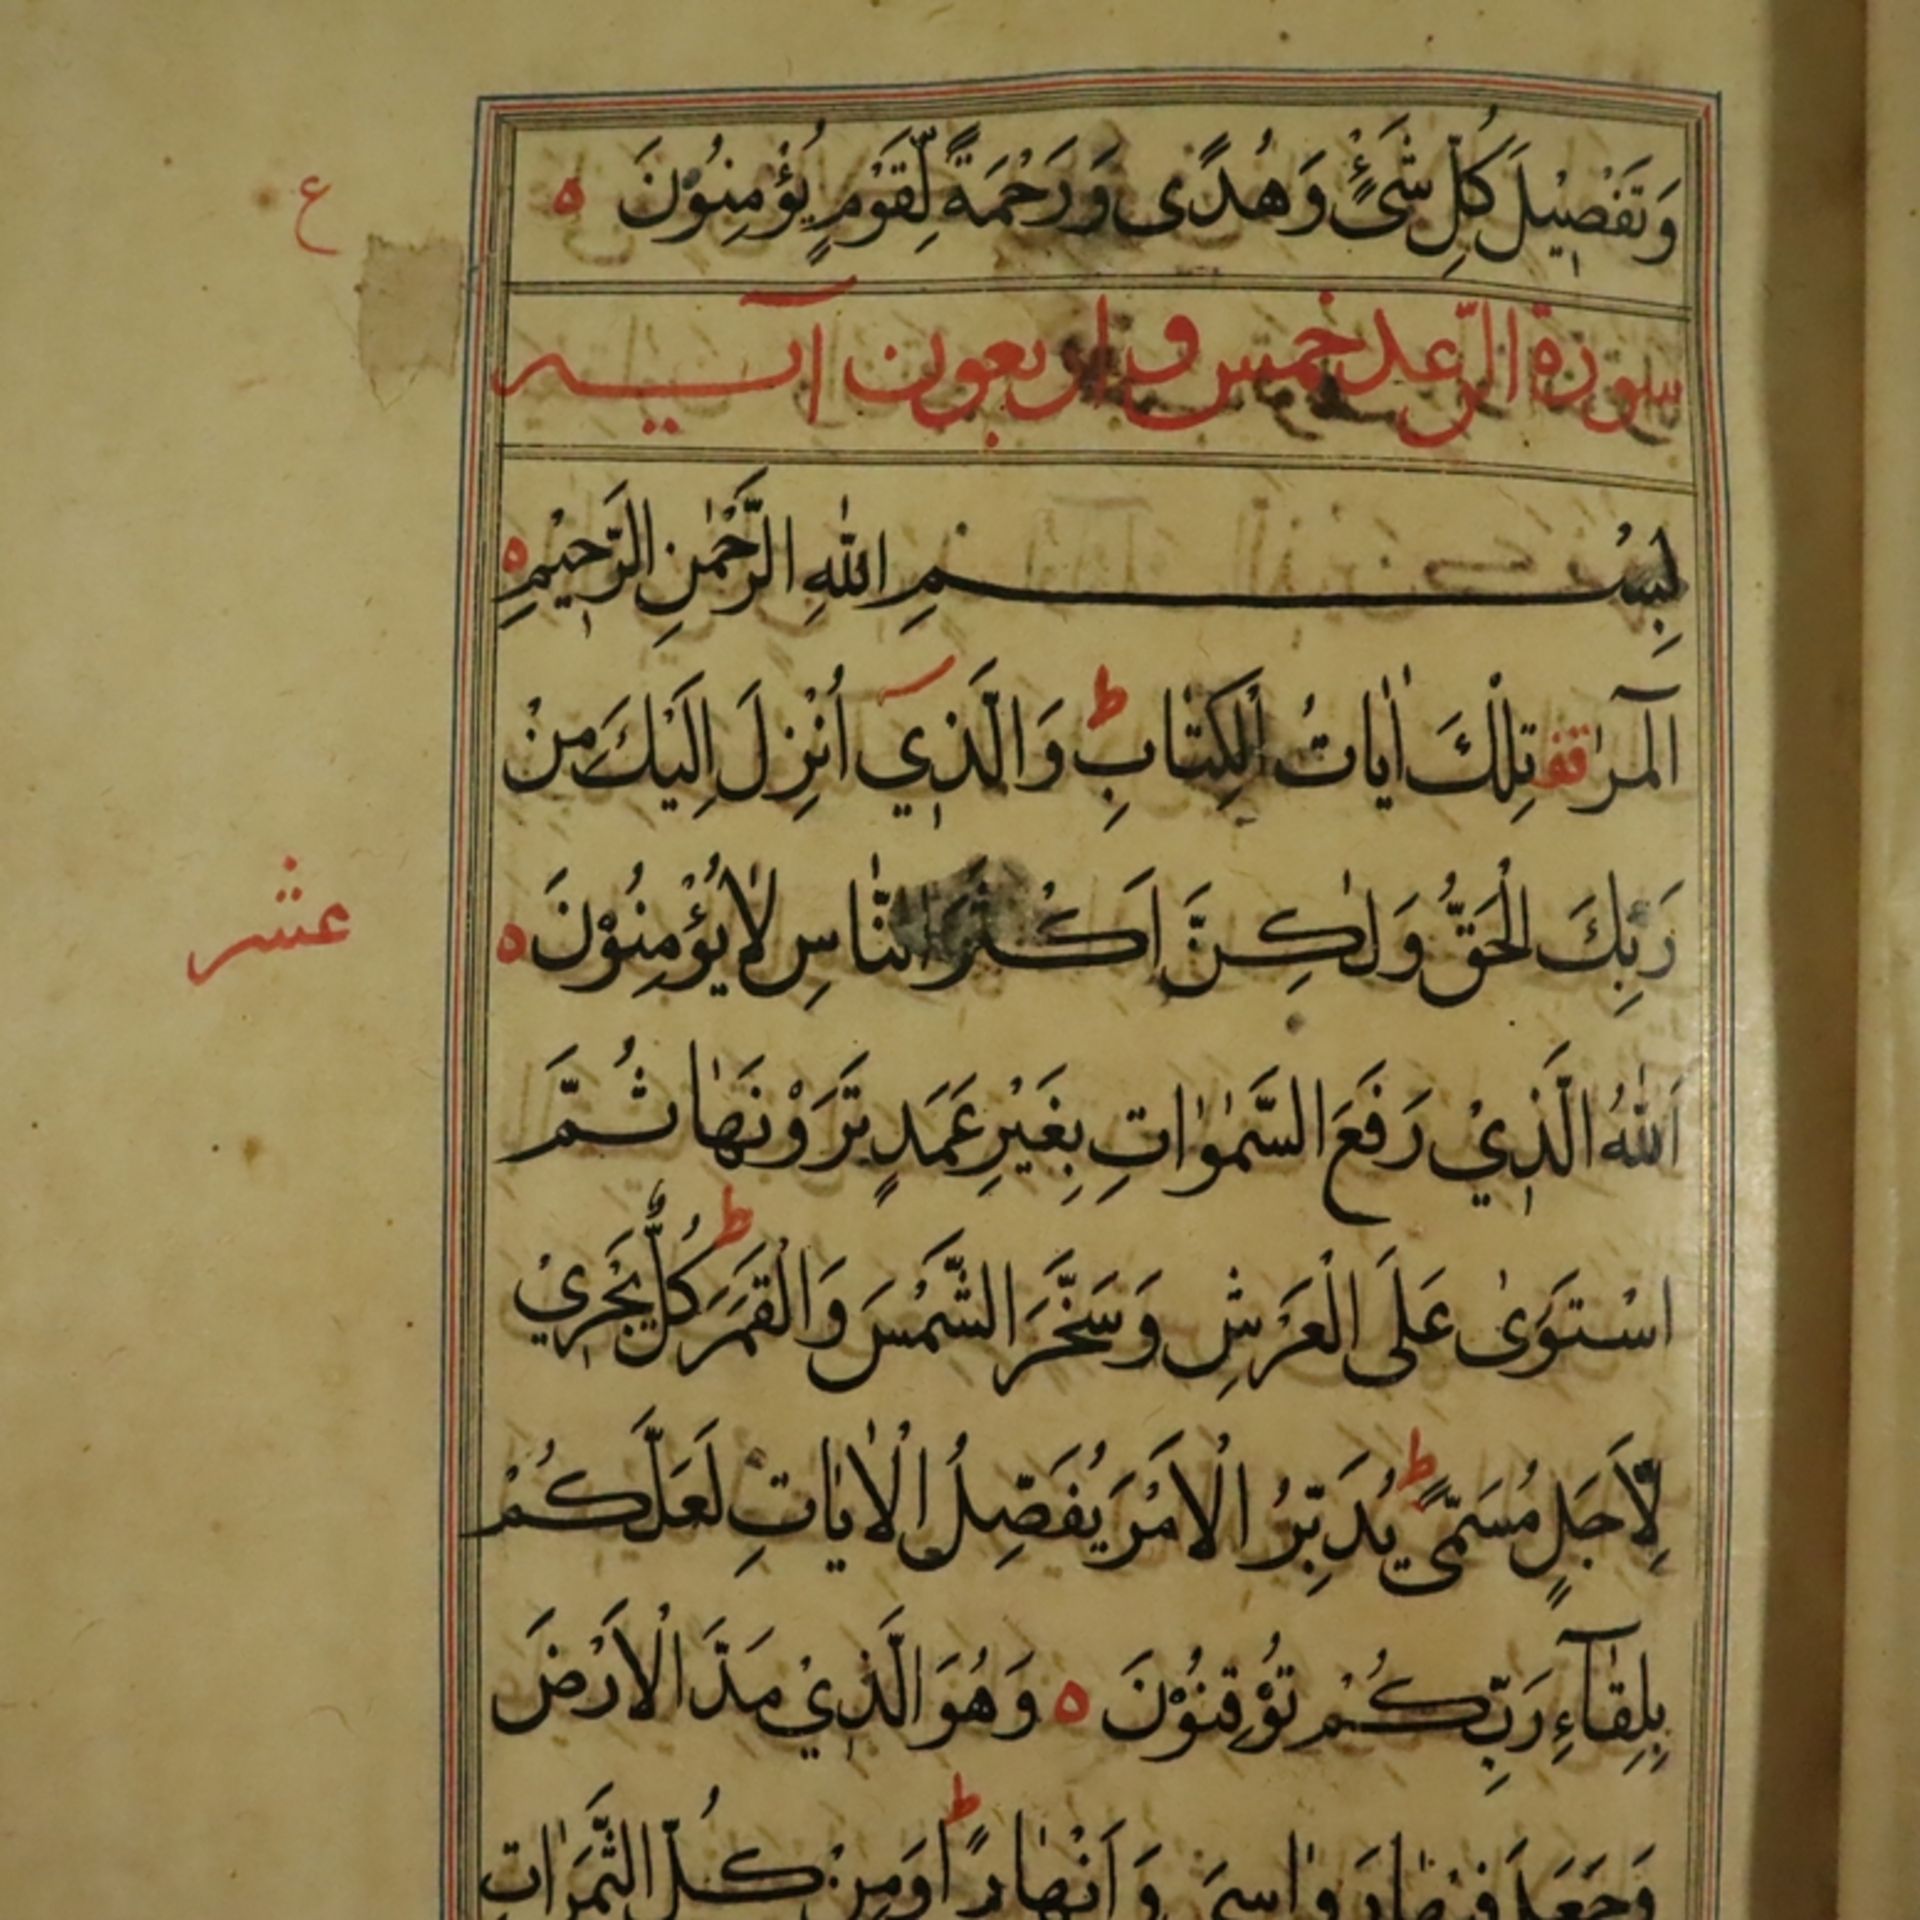 وَتَفْصِيْلَ كُلِّ شَيْءٍ وَهُدًى وَرَحْمَةً لِّقَوْمٍ يُؤْمِنُوْنَ ه
ع
سورة الرّعد خمس و اربعون آيه
بِسْمِ اللّٰهِ الرَّحْمٰنِ الرَّحِيْمِ ه
الٓمٓرٰ قف تِلْكَ اٰيَاتُ الْكِتَابِ ط وَالَّذِي اُنْزِلَ اِلَيْكَ مِنْ
رَبِّكَ الْحَقُّ وَلٰكِنَّ اَكْثَرَ النَّاسِ لَا يُؤْمِنُوْنَ ه
عشر
اَللّٰهُ الَّذِيْ رَفَعَ السَّمٰوٰاتِ بِغَيْرِ عَمَدٍ تَرَوْنَهَا ثُمَّ
اسْتَوَىٰ عَلَى الْعَرْشِ وَسَخَّرَ الشَّمْسَ وَالْقَمَرَ ط كُلٌّ يَجْرِيْ
لِاَجَلٍ مُسَمًّى ط يُدَبِّرُ الْاَمْرَ يُفَصِّلُ الْاٰيَاتِ لَعَلَّكُمْ
بِلِقَآءِ رَبِّكُمْ تُوْقِنُوْنَ ه وَهُوَ الَّذِيْ مَدَّ الْاَرْضَ
وَجَعَلَ فِيْهَا رَوَاسِيَ وَاَنْهَارًا ط وَمِنْ كُلِّ الثَّمَرَاتِ